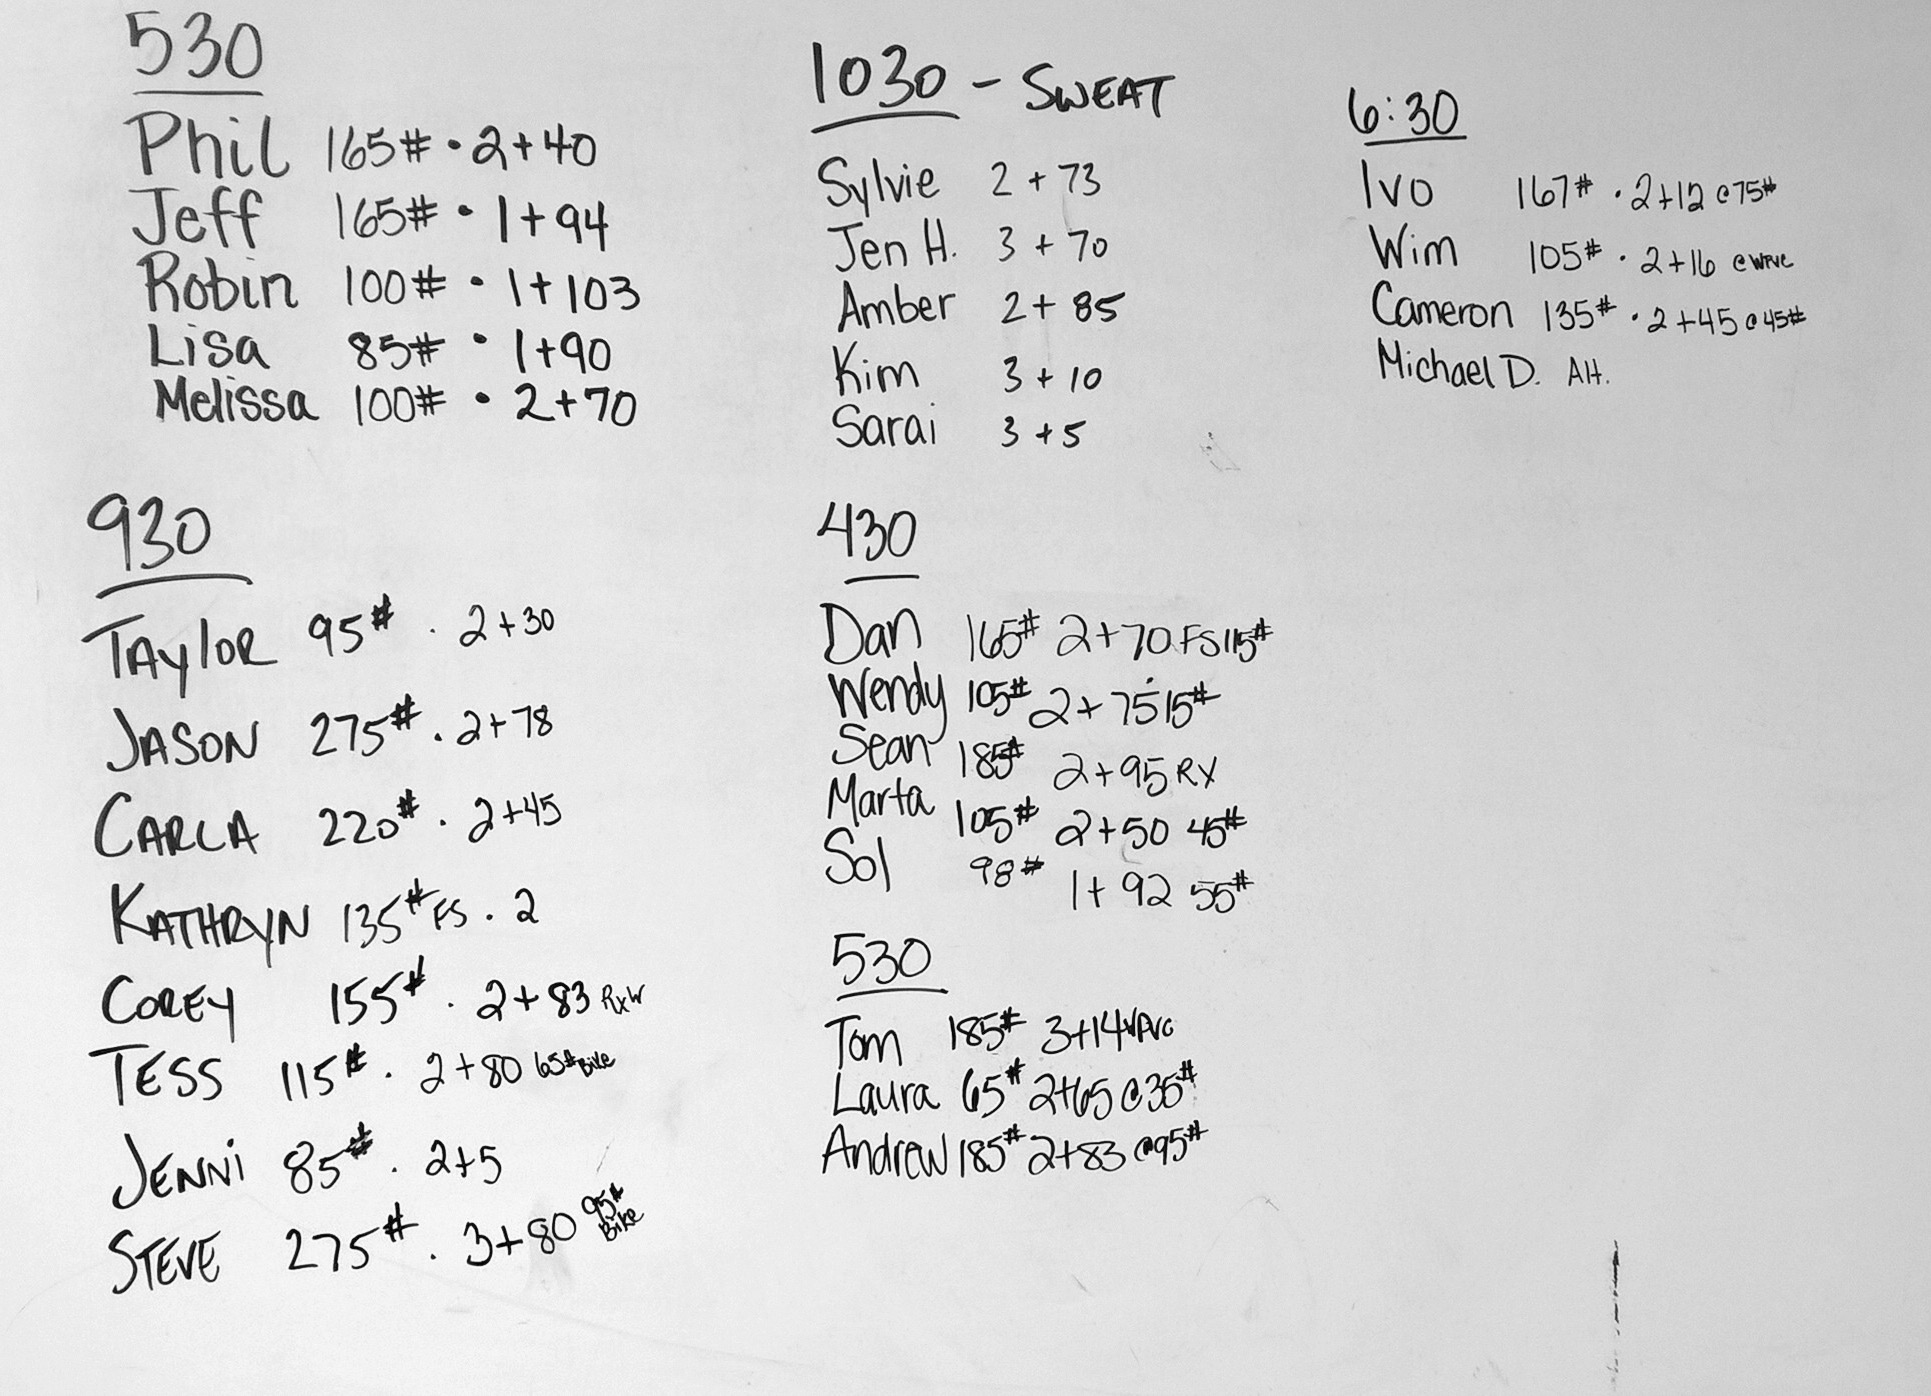 530
Phil 165# • 2+40
Jeff 165# • 1+94
Robin 100# • 1+103
Lisa 85# • 1+90
Melissa 100# • 2+70
930
TAylOR 95# . 2+30
JASON 275# . 2+78
CARLA 220# . 2+45
KATHRYN 135# FS . 2
COREY 155# . 2+83 RxW
TESS 115# . 2+80 65# Bike
JENNi 85# . 2+5
STEVE 275# . 3+80 95# Bike
1030 - SWEAT
Sylvie 2 + 73
Jen H. 3 + 70
Amber 2 + 85
Kim 3 + 10
Sarai 3 + 5
430
Dan 165# 2+70 FS 115#
Wendy 105# 2+75 15#
Sean 185# 2+95 RX
Marta 105# 2+50 45#
Sol 98# 1+92 55#
530
Tom 185# 3+14
Laura 65# 2+65 @35#
Andrew 185# 2+83 @95#
6:30
Ivo 167# . 2+12 @75#
Wim 105# . 2+16
Cameron 135# . 2+45 @45#
Michael D. Alt.